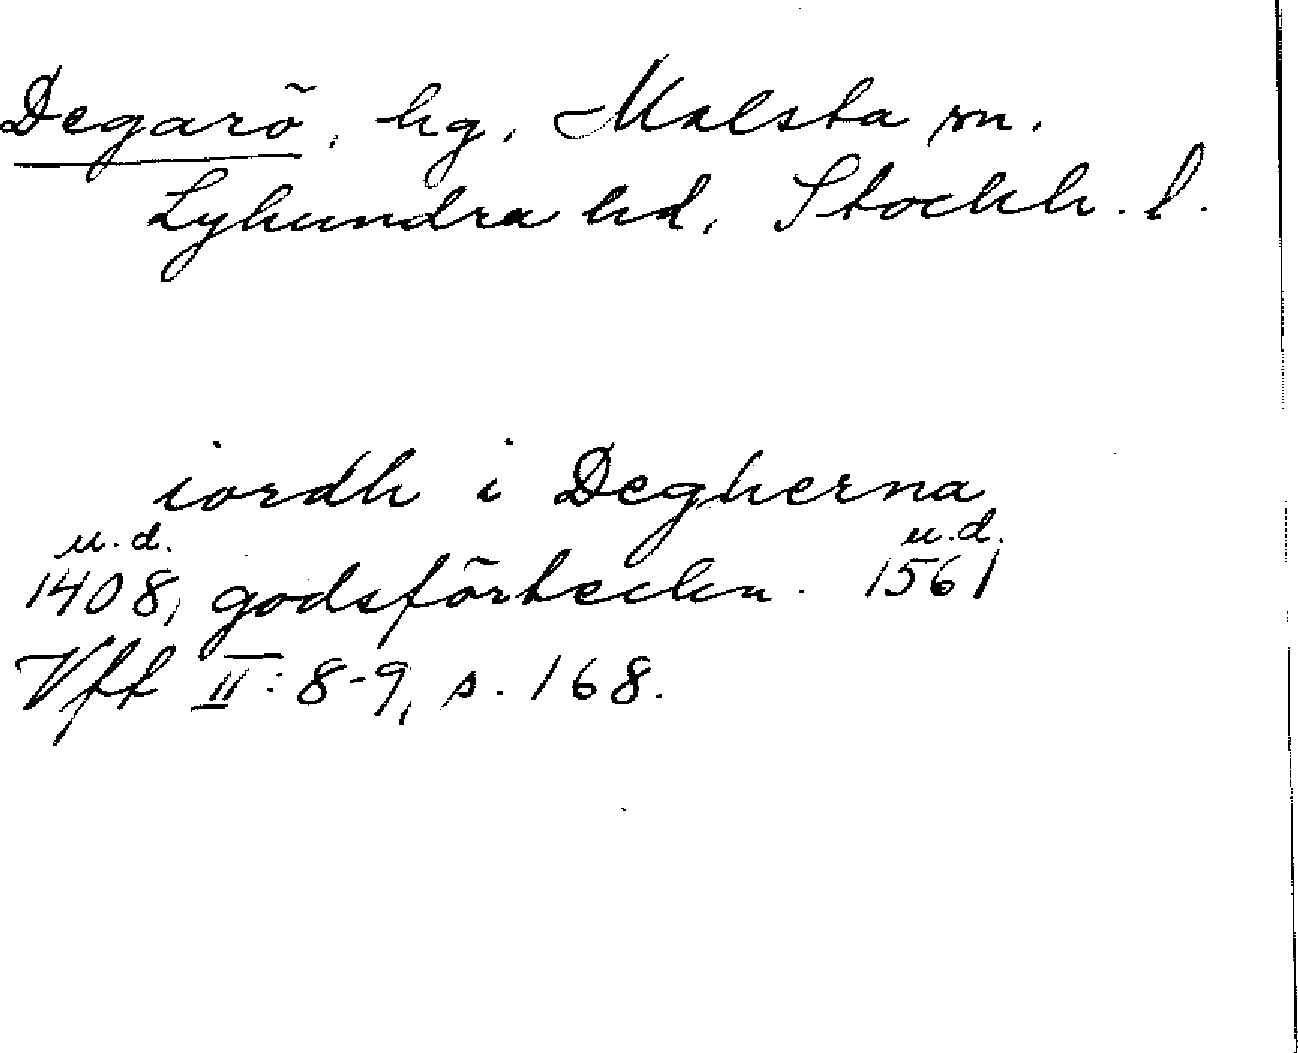 Degarö, hg, Malsta sn.
Lyhundra hd, Stockh. l.
iordh i Degherna
u.d. u.d.
1408, godsförteckn. 1561
Vff II: 8-9, s. 168.